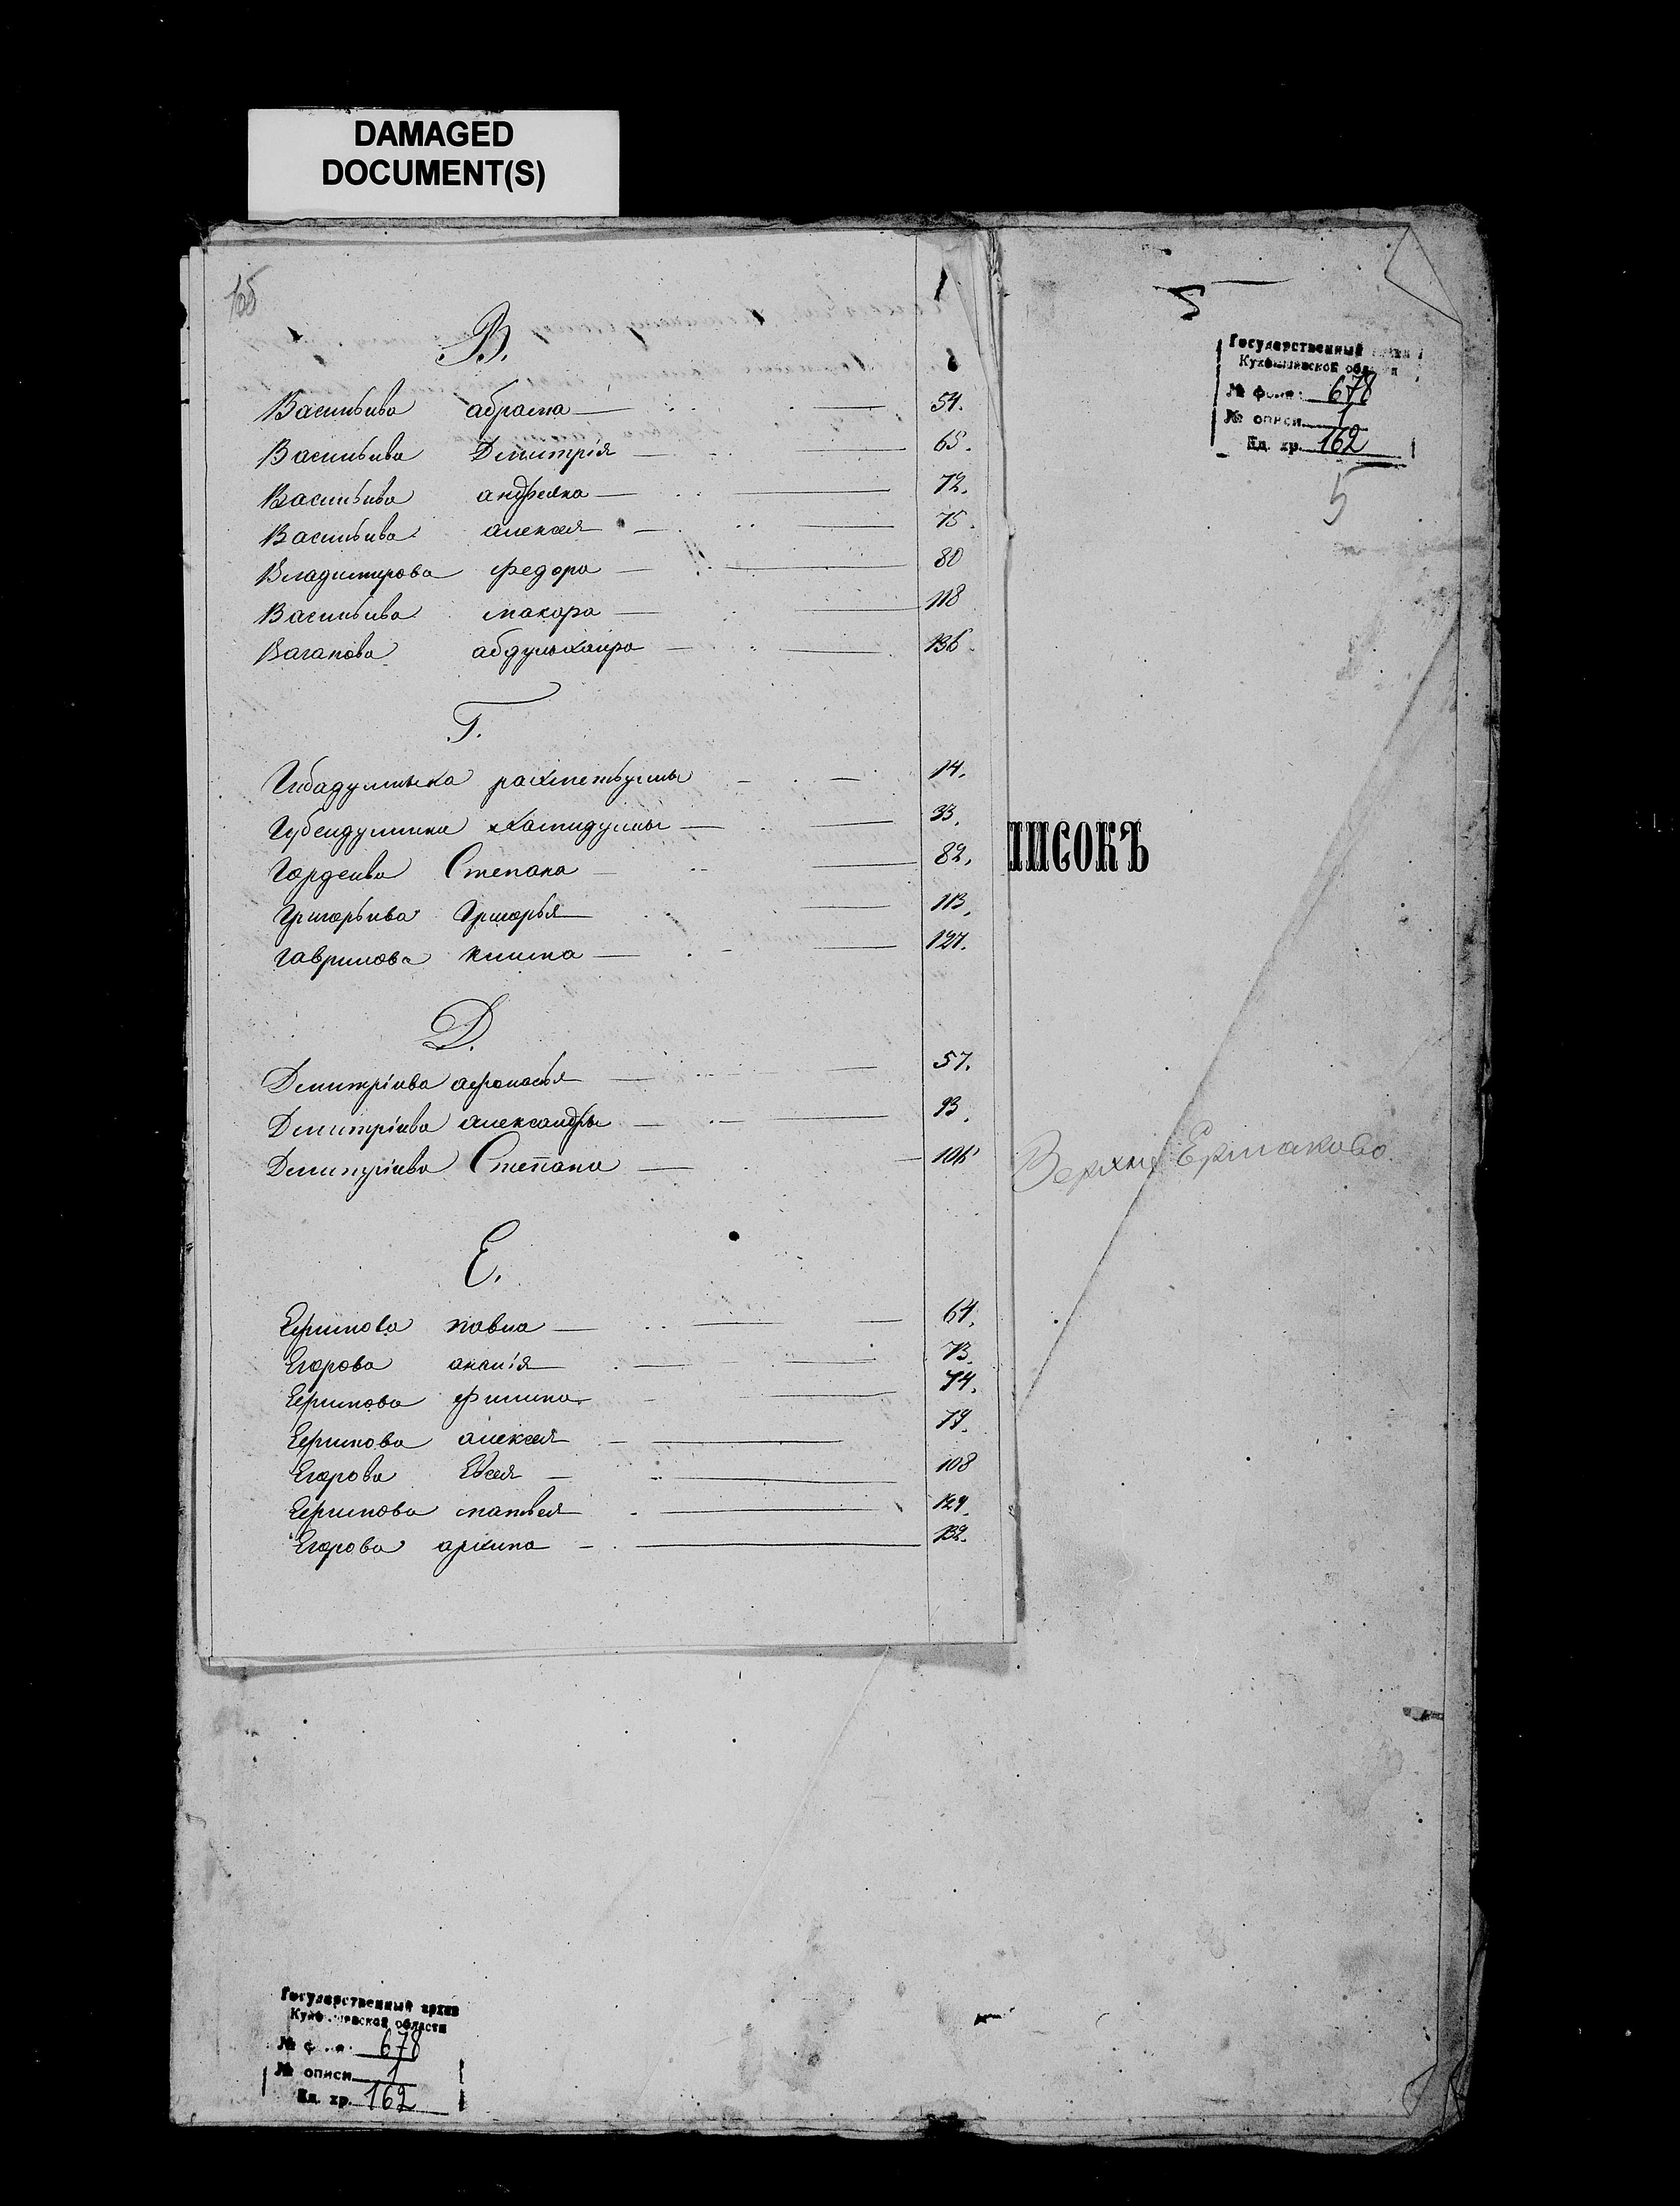 DAMAGED
DOCUMENT(S)
105
В.
Васильева абрама 54.
Васильева Дмитрія 65.
Васильева андреяна 72.
Васильева алексея 75.
Владимирова федора 80
Васильева макара 118
Ваганова абдулхаира 136.
Г.
Гибадуллина рахметуллы 14.
Губейдуллина Хамидуллы 33.
Гордеева Степана 82.
Григорьева Григорья 113.
Гаврилова клима 127.
Д.
Дмитріева афонасья 57.
Дмитріева александры 93.
Дмитріева Степана 106
Е.
Ефимова павла 64.
Егорова ананія 73.
Ефимова филипа 74.
Ефимова алексея 79.
Егорова Евсея 108
Ефимова матвея 129.
Егорова архипа 132.
5
Государственный архив
Куйбышевской области
№ фонда 678
№ описи 1
Ед. хр. 162
5
ПИСОКЪ
Верхне Ермаково.
Государственный архив
Куйбышевской области
№ фонда 678
№ описи 1
Ед. хр. 162